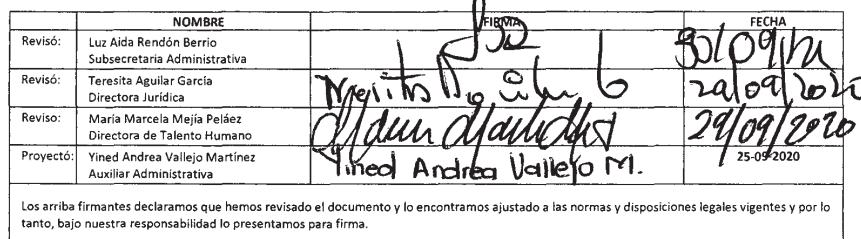 NOMBRE FIRMA FECHA
Revisó: Luz Aida Rendón Berrio
Subsecretaria Administrativa
30/09/
Revisó: Teresita Aguilar García
Directora Jurídica
29/09/2020
Reviso: María Marcela Mejía Peláez
Directora de Talento Humano
29/09/2020
Proyectó: Yined Andrea Vallejo Martínez
Auxiliar Administrativa
Yined Andrea Vallejo M.
25-09-2020
Los arriba firmantes declaramos que hemos revisado el documento y lo encontramos ajustado a las normas y disposiciones legales vigentes y por lo
tanto, bajo nuestra responsabilidad lo presentamos para firma.